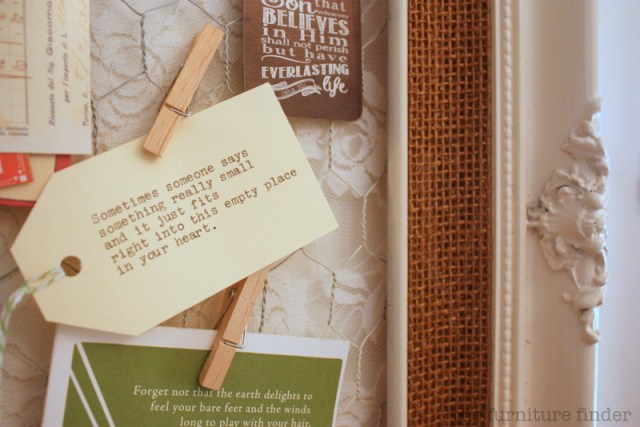 son that
BELIEVES
in Him
shall not perish
but have
EVERLASTING
life
Sometimes someone says
something really small
and it just fits
right into this empty place
in your heart.
Forget not that the earth delights to
feel your bare feet and the winds
long to play with your hair.
furniture finder